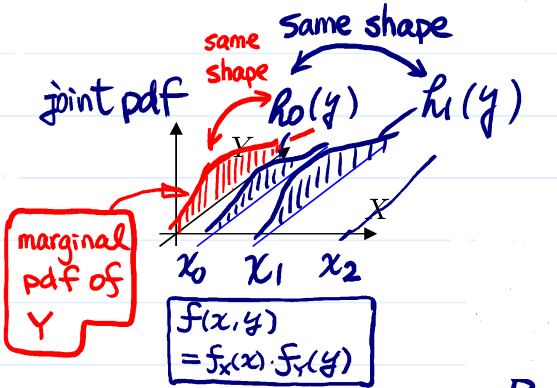 same shape
same
shape
joint pdf
h₀(y)
h₁(y)
Y
X
x₀
x₁
x₂
marginal
pdf of
Y
f(x,y)
=fₓ(x)·f_Y(y)